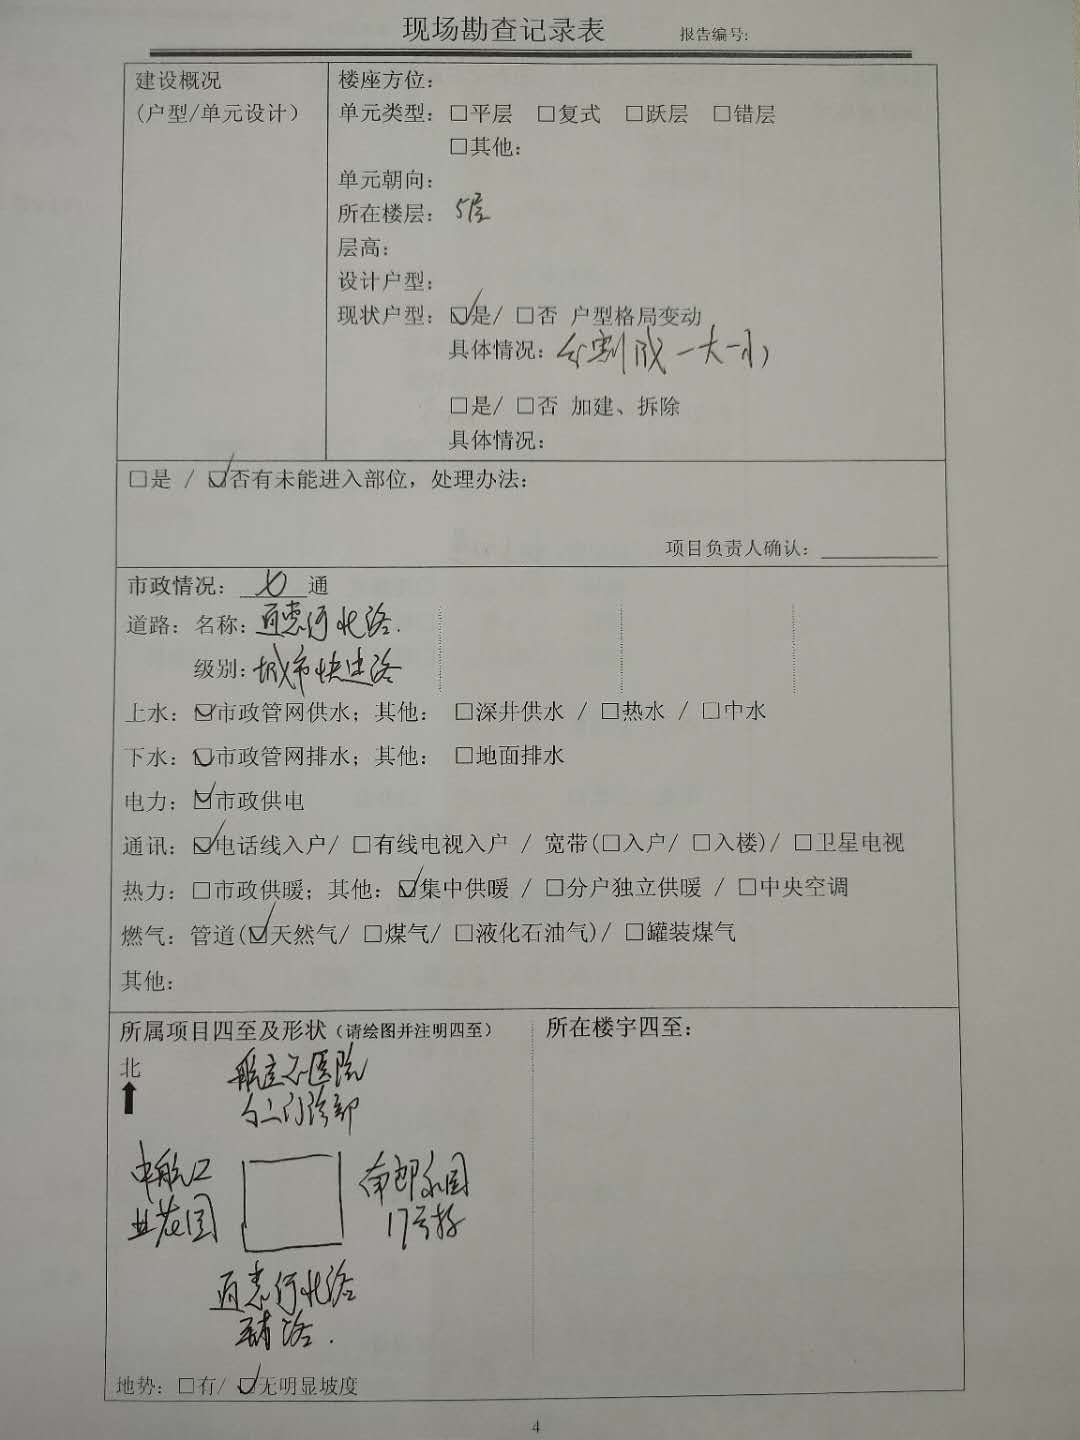 现场勘查记录表 报告编号:
建设概况
(户型/单元设计)
楼座方位:
单元类型: □平层 □复式 □跃层 □错层
□其他:
单元朝向:
所在楼层: 5层
层高:
设计户型:
现状户型: ☑是/ □否 户型格局变动
具体情况: 分割成一大一小
□是/ □否 加建、拆除
具体情况:
□是 / ☑否有未能进入部位, 处理办法:
项目负责人确认:
市政情况: 七通
道路: 名称: 通惠河北路.
级别: 城市快速路
上水: ☑市政管网供水; 其他: □深井供水 / □热水 / □中水
下水: ☑市政管网排水; 其他: □地面排水
电力: ☑市政供电
通讯: ☑电话线入户/ □有线电视入户 / 宽带(□入户/ □入楼)/ □卫星电视
热力: □市政供暖; 其他: ☑集中供暖 / □分户独立供暖 / □中央空调
燃气: 管道(☑天然气/ □煤气/ □液化石油气)/ □罐装煤气
其他:
所属项目四至及形状(请绘图并注明四至)
北
医院
门诊部
中航工
业花园
家园
17号楼
通惠河北路
辅路.
所在楼宇四至:
地势: □有/ ☑无明显坡度
4